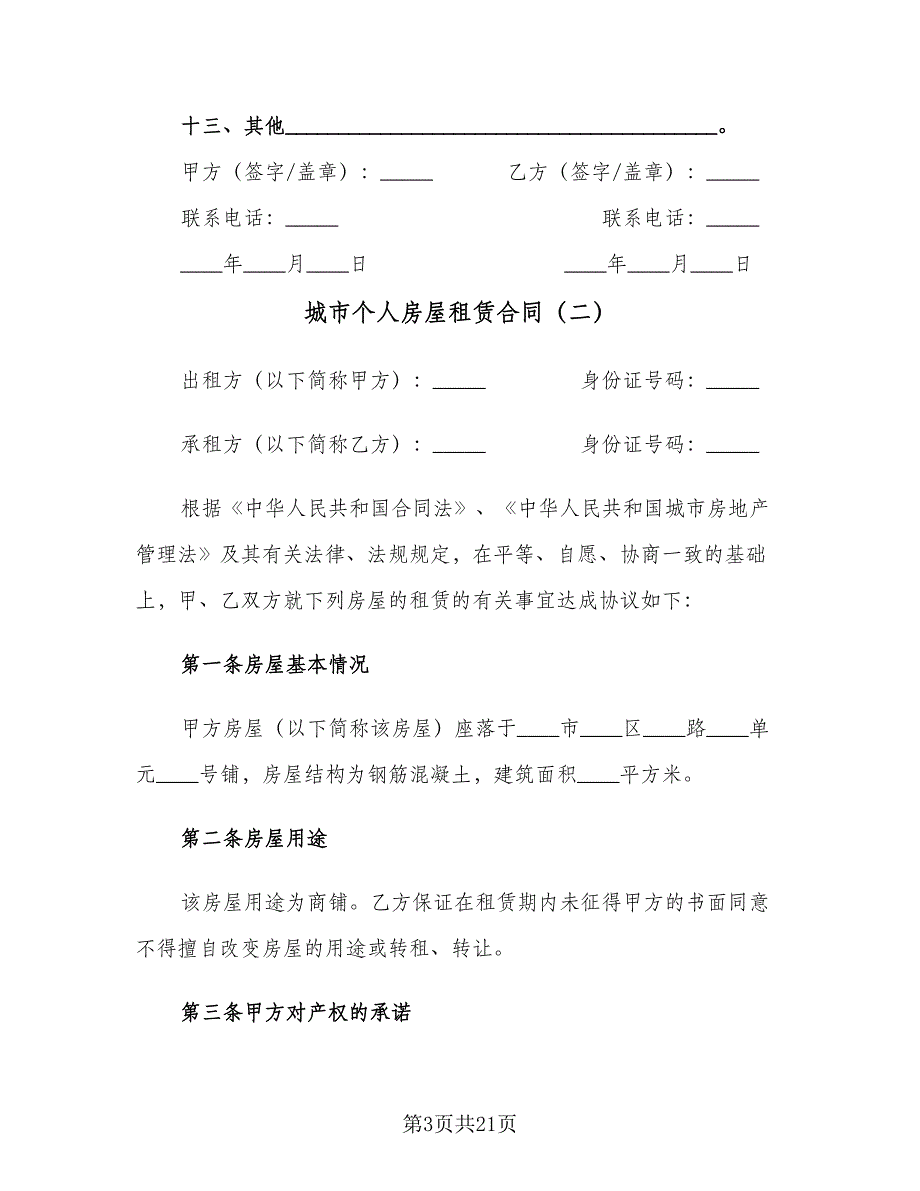 十三、其他_________________________________________。
甲方（签字/盖章）：_____ 乙方（签字/盖章）：_____
联系电话：_____ 联系电话：_____
____年____月____日 ____年____月____日
城市个人房屋租赁合同（二）
出租方（以下简称甲方）：_____ 身份证号码：_____
承租方（以下简称乙方）：_____ 身份证号码：_____
根据《中华人民共和国合同法》、《中华人民共和国城市房地产
管理法》及其有关法律、法规规定，在平等、自愿、协商一致的基础
上，甲、乙双方就下列房屋的租赁的有关事宜达成协议如下：
第一条房屋基本情况
甲方房屋（以下简称该房屋）座落于____市____区____路____单
元____号铺，房屋结构为钢筋混凝土，建筑面积____平方米。
第二条房屋用途
该房屋用途为商铺。乙方保证在租赁期内未征得甲方的书面同意
不得擅自改变房屋的用途或转租、转让。
第三条甲方对产权的承诺
第3页共21页